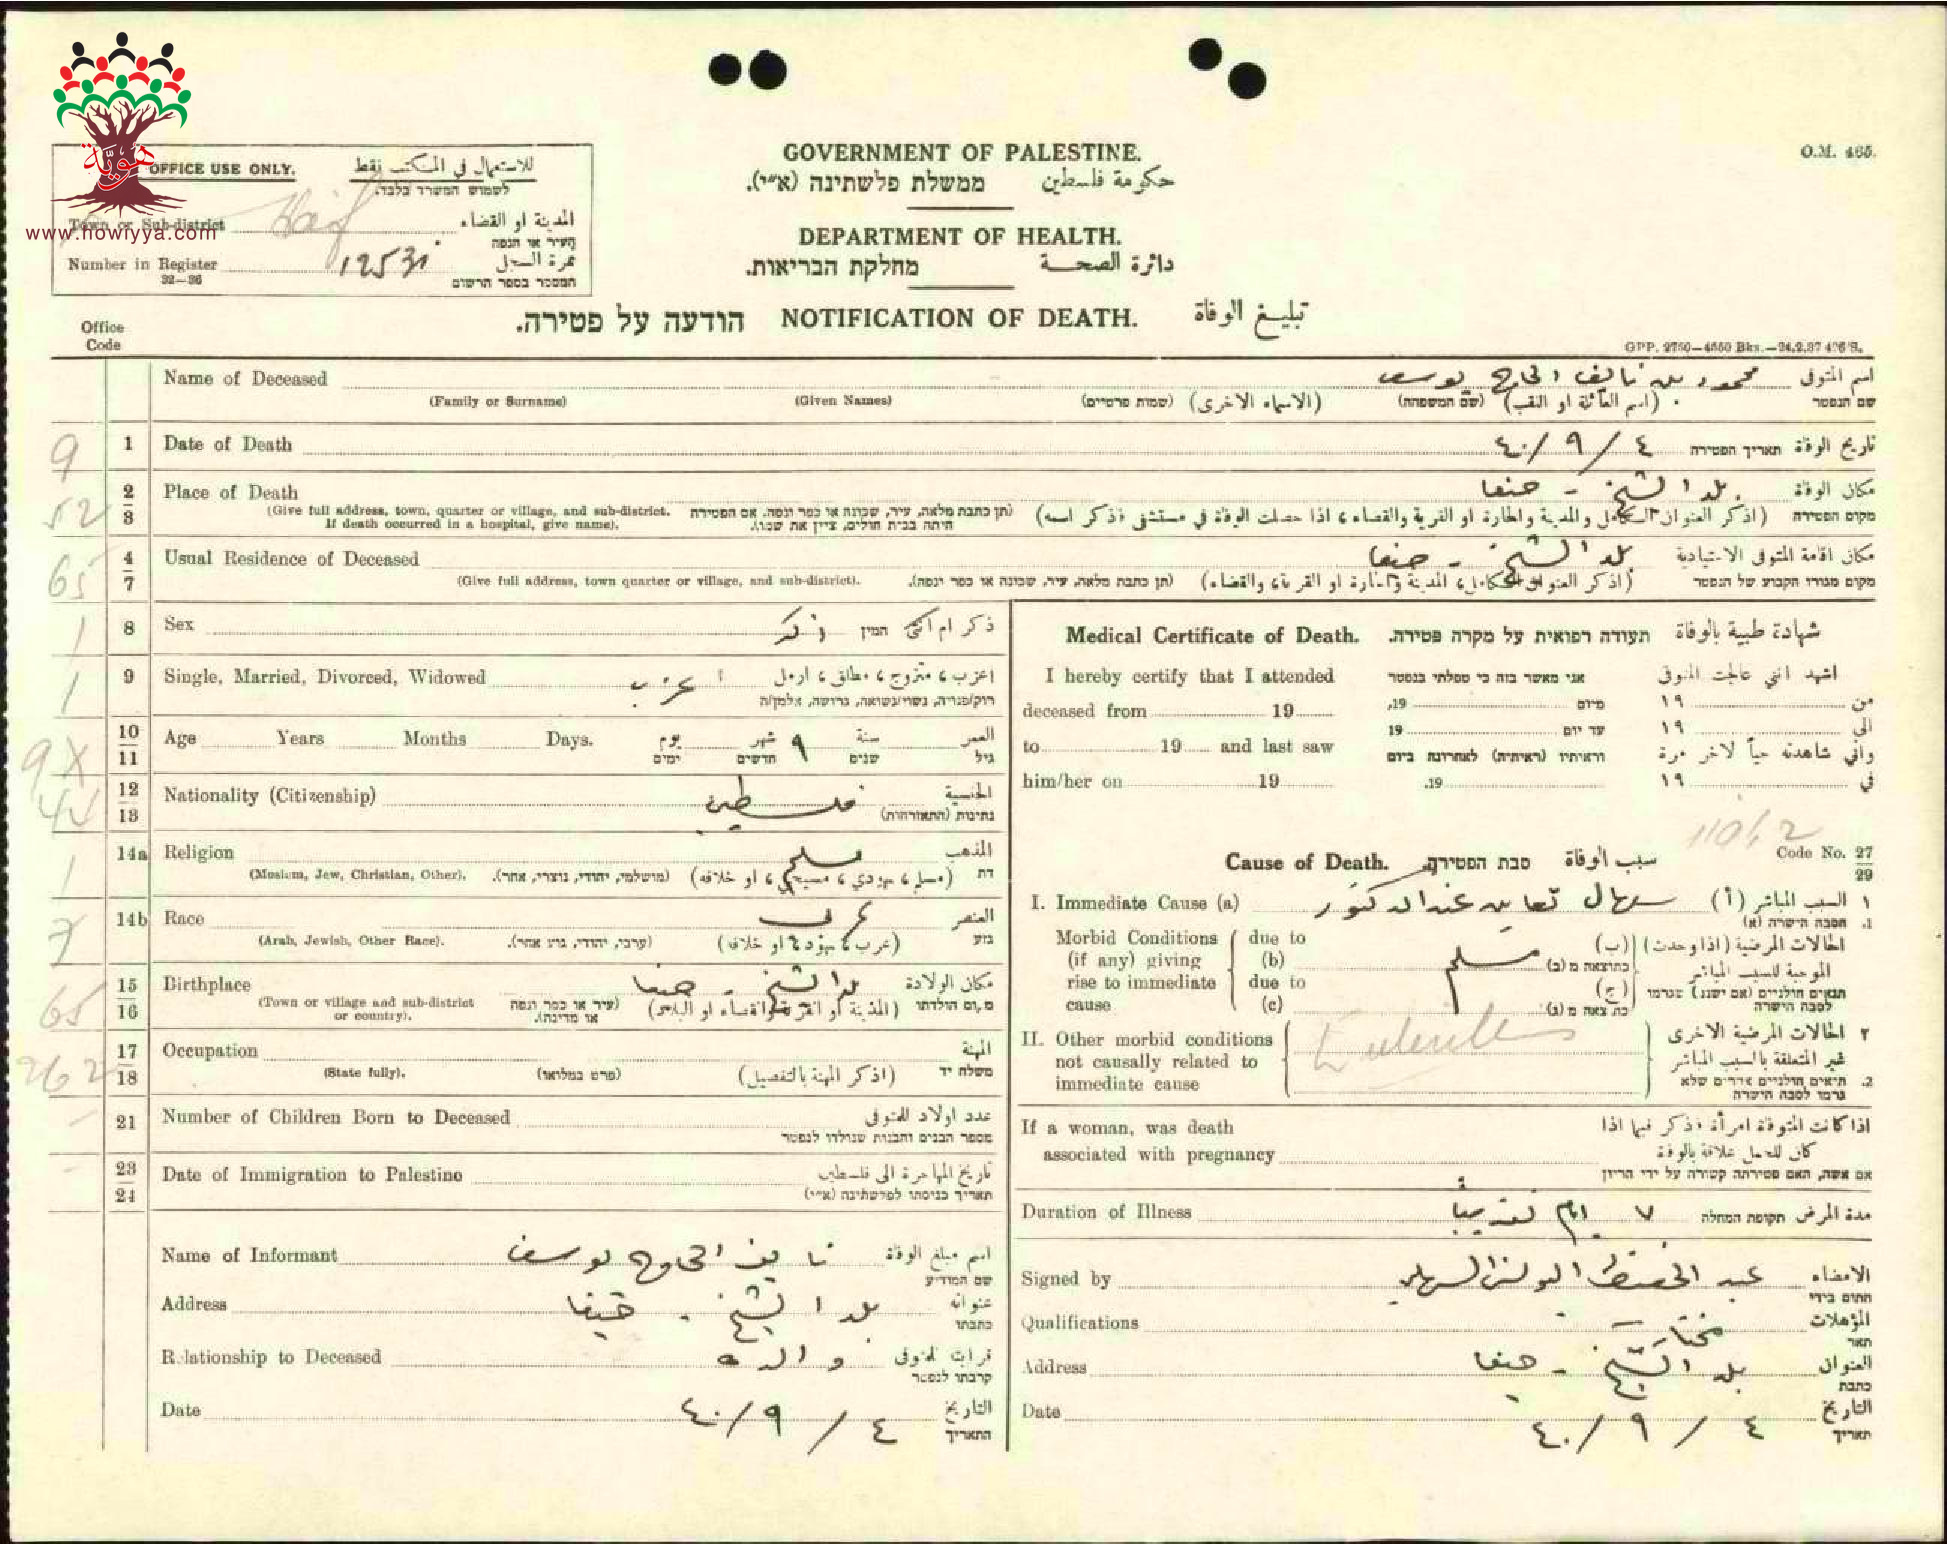 هوية
www.howiyya.com
O.M. 465.
GOVERNMENT OF PALESTINE.
ממשלת פלשתינה (א״י). حكومة فلسطين
DEPARTMENT OF HEALTH.
מחלקת הבריאות. دائرة الصحة
הודעה על פטירה. NOTIFICATION OF DEATH. تبليغ الوفاة
OFFICE USE ONLY. للاستعمال في المكتب فقط
לשמוש המשרד בלבד.
Town or Sub-district Haif المدينة او القضاء
העיר או הנפה
Number in Register 12531 نمرة السجل
32—36 המספר בספר הרשום
Office
Code
GPP. 2750—4550 Bks.—24.2.37 476'S.
Name of Deceased محمود بن نايف الحاج يوسف اسم المتوفى
(Family or Surname) (Given Names) (שמות פרטיים) (الاسماء الاخرى) (שם המשפחה) (اسم العائلة او اللقب) שם הנפטר
9 1 Date of Death ٤ / ٩ / ٤٠ תאריך הפטירה تاريخ الوفاة
52 2 3 Place of Death بلد الشيخ - حيفا مكان الوفاة
(Give full address, town, quarter or village, and sub-district. (תן כתבת מלאה, עיר, שכונה או כפר ונפה. אם הפטירה (اذكر العنوان الكامل والمدينة والحارة او القرية والقضاء، اذا حصلت الوفاة في مستشفى فذكر اسمه) מקום הפטירה
If death occurred in a hospital, give name). היתה בבית חולים, ציין את שמו).
65 4 7 Usual Residence of Deceased بلد الشيخ - حيفا مكان اقامة المتوفى الاعتيادية
(Give full address, town quarter or village, and sub-district). (תן כתבת מלאה, עיר, שכונה או כפר ונפה). (اذكر العنوان الكامل، المدينة والحارة او القرية، والقضاء) מקום מגורו הקבוע של הנפטר
1 8 Sex ذكر המין ذكر ام انثى
1 9 Single, Married, Divorced, Widowed اعزب اعزب، متزوج، مطلق، ارمل
רוק/פנויה, נשוי/נשואה, גרושה, אלמן/ה
9X 10 11 Age Years Months Days. يوم شهر ٩ سنة العمر
ימים חדשים שנים גיל
44 12 13 Nationality (Citizenship) فلسطين الجنسية
נתינות (התאזרחות)
1 14a Religion مسلم المذهب
(Moslem, Jew, Christian, Other). (מושלמי, יהודי, נוצרי, אחר). (مسلم، يهودي، مسيحي، او خلافه) דת
7 14b Race عربي العنصر
(Arab, Jewish, Other Race). (ערבי, יהודי, גזע אחר). (عرب، يهود، او خلافه) גזע
65 15 16 Birthplace بلد الشيخ - حيفا مكان الولادة
(Town or village and sub-district or country). (עיר או כפר ונפה או מדינה). (المدينة او القرية والقضاء او البلاد) מקום הולדתו
262 17 18 Occupation المهنة
(State fully). (פרט במלואו) (اذكر المهنة بالتفصيل) משלח יד
21 Number of Children Born to Deceased عدد اولاد للمتوفى
מספר הבנים והבנות שנולדו לנפטר
23 24 Date of Immigration to Palestine تاريخ المهاجرة الى فلسطين
תאריך כניסתו לפלשתינה (א״י)
Name of Informant نايف الحاج يوسف اسم مبلغ الوفاة
שם המודיע
Address بلد الشيخ - حيفا عنوانه
כתבתו
Relationship to Deceased والده قرابته للمتوفى
קרבתו לנפטר
Date ٤ / ٩ / ٤٠ التاريخ
התאריך
Medical Certificate of Death. תעודה רפואית על מקרה פטירה. شهادة طبية بالوفاة
I hereby certify that I attended אני מאשר בזה כי טפלתי בנפטר اشهد انني عالجت المتوفى
deceased from 19 19, מיום ١٩ من
to 19 and last saw 19 עד יום ١٩ الى
וראיתיו (ראיתיה) לאחרונה ביום واني شاهدته حياً لآخر مرة
him/her on 19 19. ١٩ في
Code No. 27 29
Cause of Death. סבת הפטירה سبب الوفاة
I. Immediate Cause (a) سهال عند الدكتور (أ) السبب المباشر ١
1. הסבה הישרה (א)
Morbid Conditions due to (ب) الحالات المرضية (اذا وجدت)
(if any) giving (b) مسلم כתוצאה מ (ב) الموجبة للسبب المباشر
rise to immediate due to (ج) תנאים חולניים (אם ישנם) שגרמו
cause (c) כתוצאה מ (ג) לסבה הישרה
II. Other morbid conditions Enteritis الحالات المرضية الاخرى ٢
not causally related to غير المتعلقة بالسبب المباشر
immediate cause 2. תנאים חולניים אחרים שלא
גרמו לסבה הישרה
If a woman, was death اذا كانت المتوفاة امرأة فذكر فيما اذا
associated with pregnancy كان للحمل علاقة بالوفاة
אם אשה, האם פטירתה קשורה על ידי הריון
Duration of Illness ٧ ايام تقريباً תקופת המחלה مدة المرض
Signed by عبد الحفيظ السهلي الامضاء
חתום בידי
Qualifications مختار المؤهلات
תאר
Address بلد الشيخ - حيفا العنوان
כתבת
Date ٤ / ٩ / ٤٠ التاريخ
תאריך